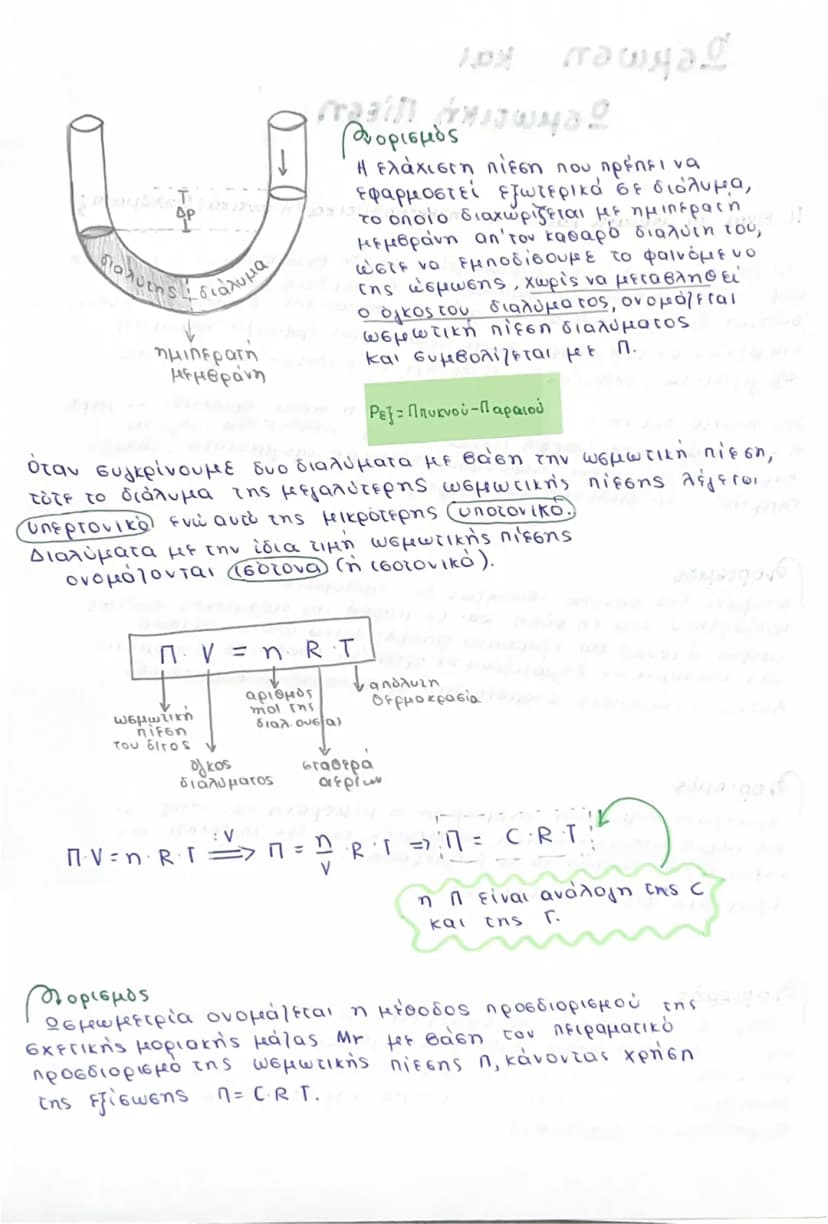 Ορισμός
Η ελάχιστη πίεση που πρέπει να
εφαρμοστεί εξωτερικά σε διάλυμα,
το οποίο διαχωρίζεται με ημιπερατή
μεμβράνη απ' τον καθαρό διαλύτη του,
ώστε να εμποδίσουμε το φαινόμενο
της ώσμωσης, χωρίς να μεταβληθεί
ο όγκος του διαλύματος, ονομάζεται
ωσμωτική πίεση διαλύματος
και συμβολίζεται με Π.
ΔP
διαλύτης διάλυμα
ημιπερατή
μεμβράνη
Pεξ = Ππυκνού - Παραιού
Όταν συγκρίνουμε δυο διαλύματα με βάση την ωσμωτική πίεση,
τότε το διάλυμα της μεγαλύτερης ωσμωτικής πίεσης λέγεται
υπερτονικό ενώ αυτό της μικρότερης υποτονικό.
Διαλύματα με την ίδια τιμή ωσμωτικής πίεσης
ονομάζονται ισότονα (ή ισοτονικά).
Π · V = n · R · T
ωσμωτική
πίεση
του δ/τος
όγκος
διαλύματος
αριθμός
mol της
διαλ. ουσίας
σταθερά
αερίων
απόλυτη
θερμοκρασία
Π·V = n·R·T ⟹ :V Π = n/V · R·T ⟹ Π = C·R·T
η Π είναι ανάλογη της C
και της T.
Ορισμός
Ωσμωμετρία ονομάζεται η μέθοδος προσδιορισμού της
σχετικής μοριακής μάζας Mr με βάση τον πειραματικό
προσδιορισμό της ωσμωτικής πίεσης Π, κάνοντας χρήση
της εξίσωσης Π = C·R·T.